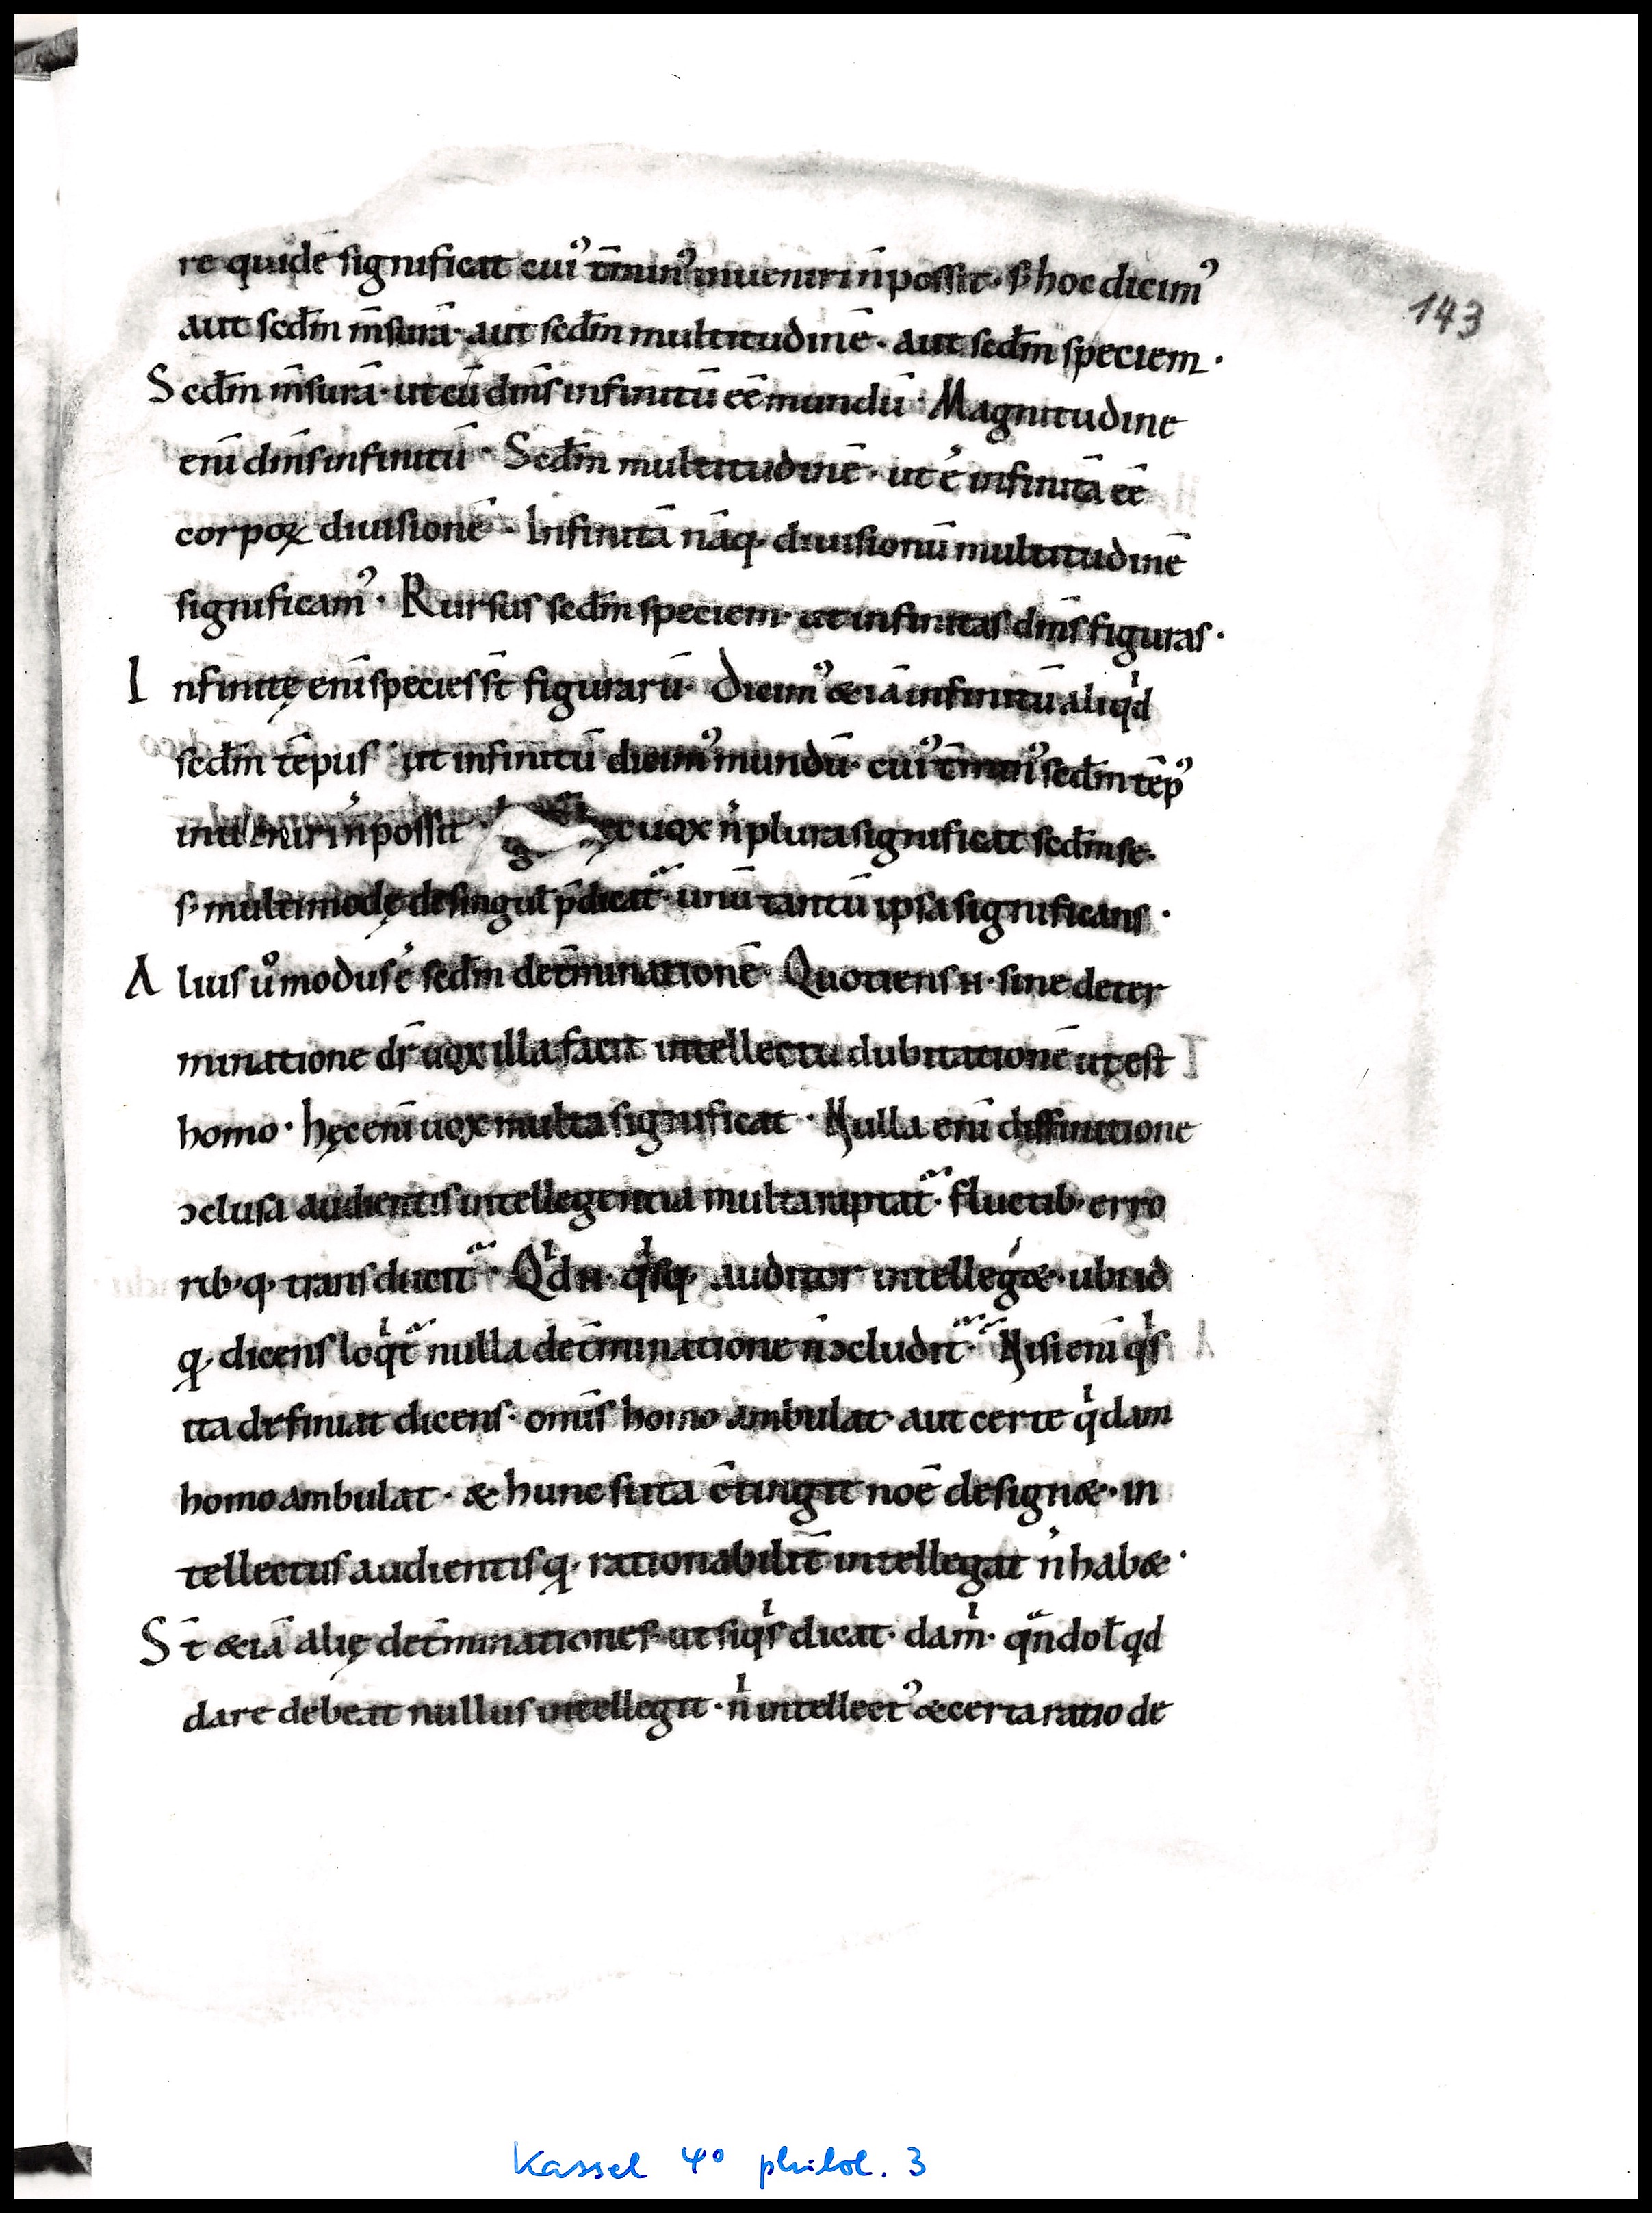 143
re quidē significat cui᾽ t̄min᾽ inueniri n̄ possit· s; hoc dicim᾽
aut scdm̄ m̄surā· aut scdm̄ multitudinē· aut scdm̄ speciem·
Scdm̄ m̄surā· ut cū dm̄s infinitū eē mundū· Magnitudine
enī dm̄s infinitū· Scdm̄ multitudinē· ut ē infinitā eē
corpoꝝ diuisionē· Infinitā nāq· diuisionū multitudinē
significam᾽· Rursus scdm̄ speciem· ut infinitas dm̄s figuras·
Infinitę enī species st̄ figurarū· Dicim᾽ &iā infinitū aliqͥd
scdm̄ tēpus· ut infinitū dicim᾽ mundū· cui᾽ t̄min᾽ scdm̄ tēp᾽
inueniri n̄ possit· ec uox n̄ plura significat scdm̄ se·
s; multimodę de singul̄ p̄dicat᷑· unū tantū ipsa significans·
Alius u᷎ modus ē scdm̄ det̄minationē· Quotiens n· sine deter
minatione dr̄ uox illa facit intellectu dubitationē ut est
homo· hęc enī uox multa significat· Nulla enī diffinitione
ↄclusa audientis intellegentia multa raptat᷑· fluctib· erro
rib·q· transducit᷑· Qͥd n· qͥsq· auditor intelleg&· ubi id
q· dicens loqͥt᷑ nulla det̄minatione n̄ ↄcludit᷑· Nisi enī qͥs
ita definiat dicens· om̄is homo ambulat· aut certe qͥdam
homo ambulat· & hunc si ita c̄tingit noē design&· in
tellectus audientis q· rationabilit̄ intellegat n̄ hab&·
St̄ &iā alię det̄minationes· ut si qͥs dicat· dam̄· qᷓndo ł qd
dare debeat nullus intellegit· nͥ intellect᾽ & certa ratio de
Kassel 4° philol. 3